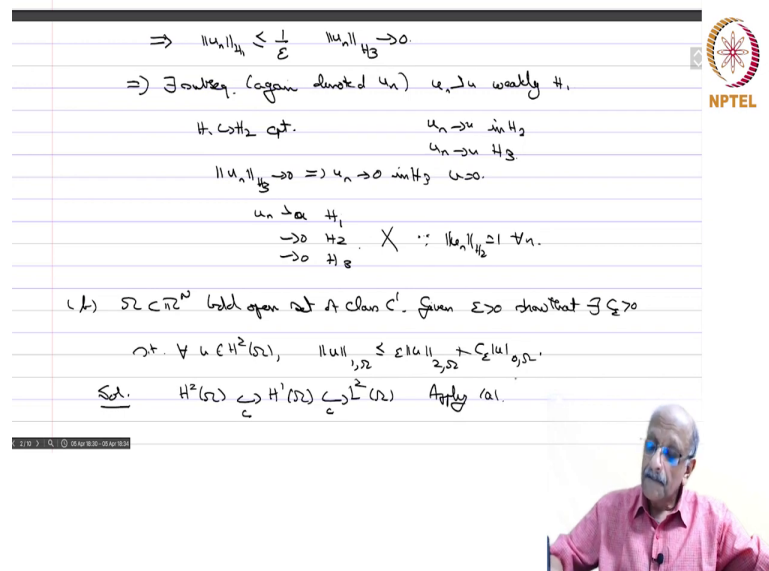 ⇒ ||uₙ||_H₁ ≤ 1/ε   ||uₙ||_H3 → 0.
⇒) ∃ subseq. (again denoted uₙ)   uₙ ⇀ u weakly H₁
H₁ ↪ H₂ cpt.   uₙ → u in H₂
uₙ → u H3.
||uₙ||_H3 → 0 ⇒ uₙ → 0 in H3   u=0.
uₙ ⇀ 0   H₁
→0   H2   X   ∵ ||uₙ||_H2 = 1 ∀n.
→0   H3
(b) Ω ⊂ ℝ^N bdd open set of class C¹. Given ε>0 show that ∃ C_ε>0
s.t. ∀ u ∈ H²(Ω),   ||u||₁,Ω ≤ ε||u||₂,Ω + C_ε|u|₀,Ω.
Sol.   H²(Ω) ↪_c H¹(Ω) ↪_c L²(Ω)   Apply (a).
NPTEL
2/10   05 Apr 18:30 - 05 Apr 18:34